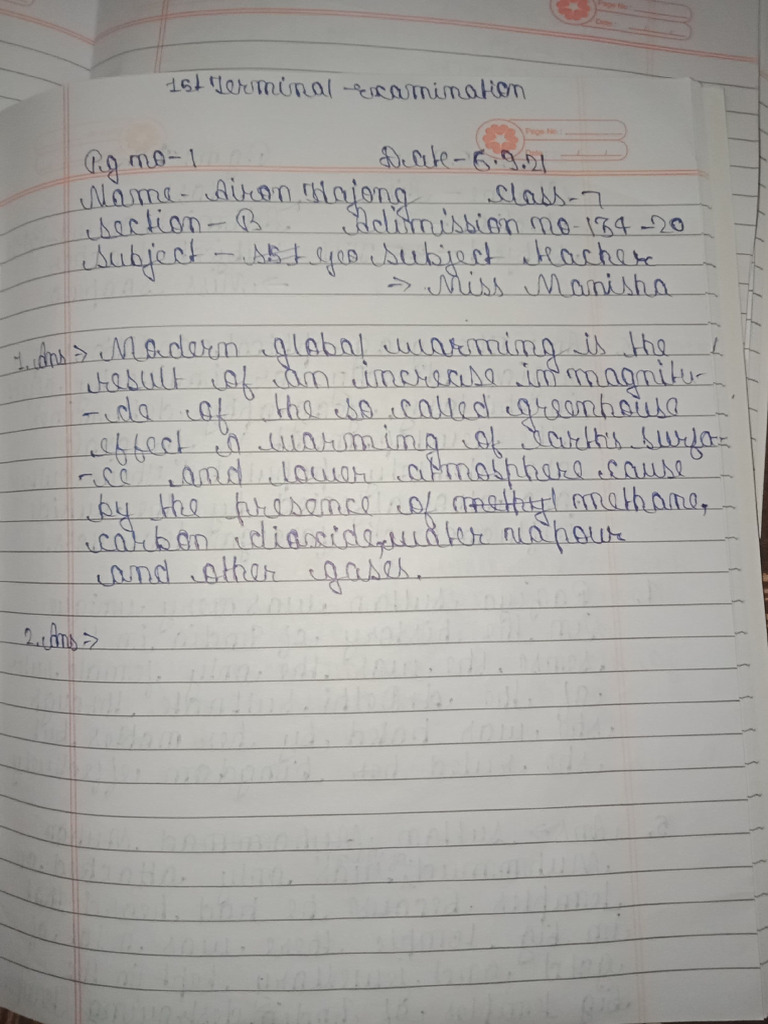 Page No:
Date
1st Terminal Examination
Page No:
Pg no-1 Date-6.9.21
Name- Airon Hajong Class-7
Section-B Adimission no-134-20
Subject - SST geo Subject teacher
→ Miss Manisha
1. Ans => Modern global warming is the
result of an increase in magnitu-
-de of the so called greenhouse
effect a warming of earths surfa-
-ce and lower atmosphere cause
by the presence of methyl methane,
carbon dioxide, water vapour
and other gases.
2. Ans =>